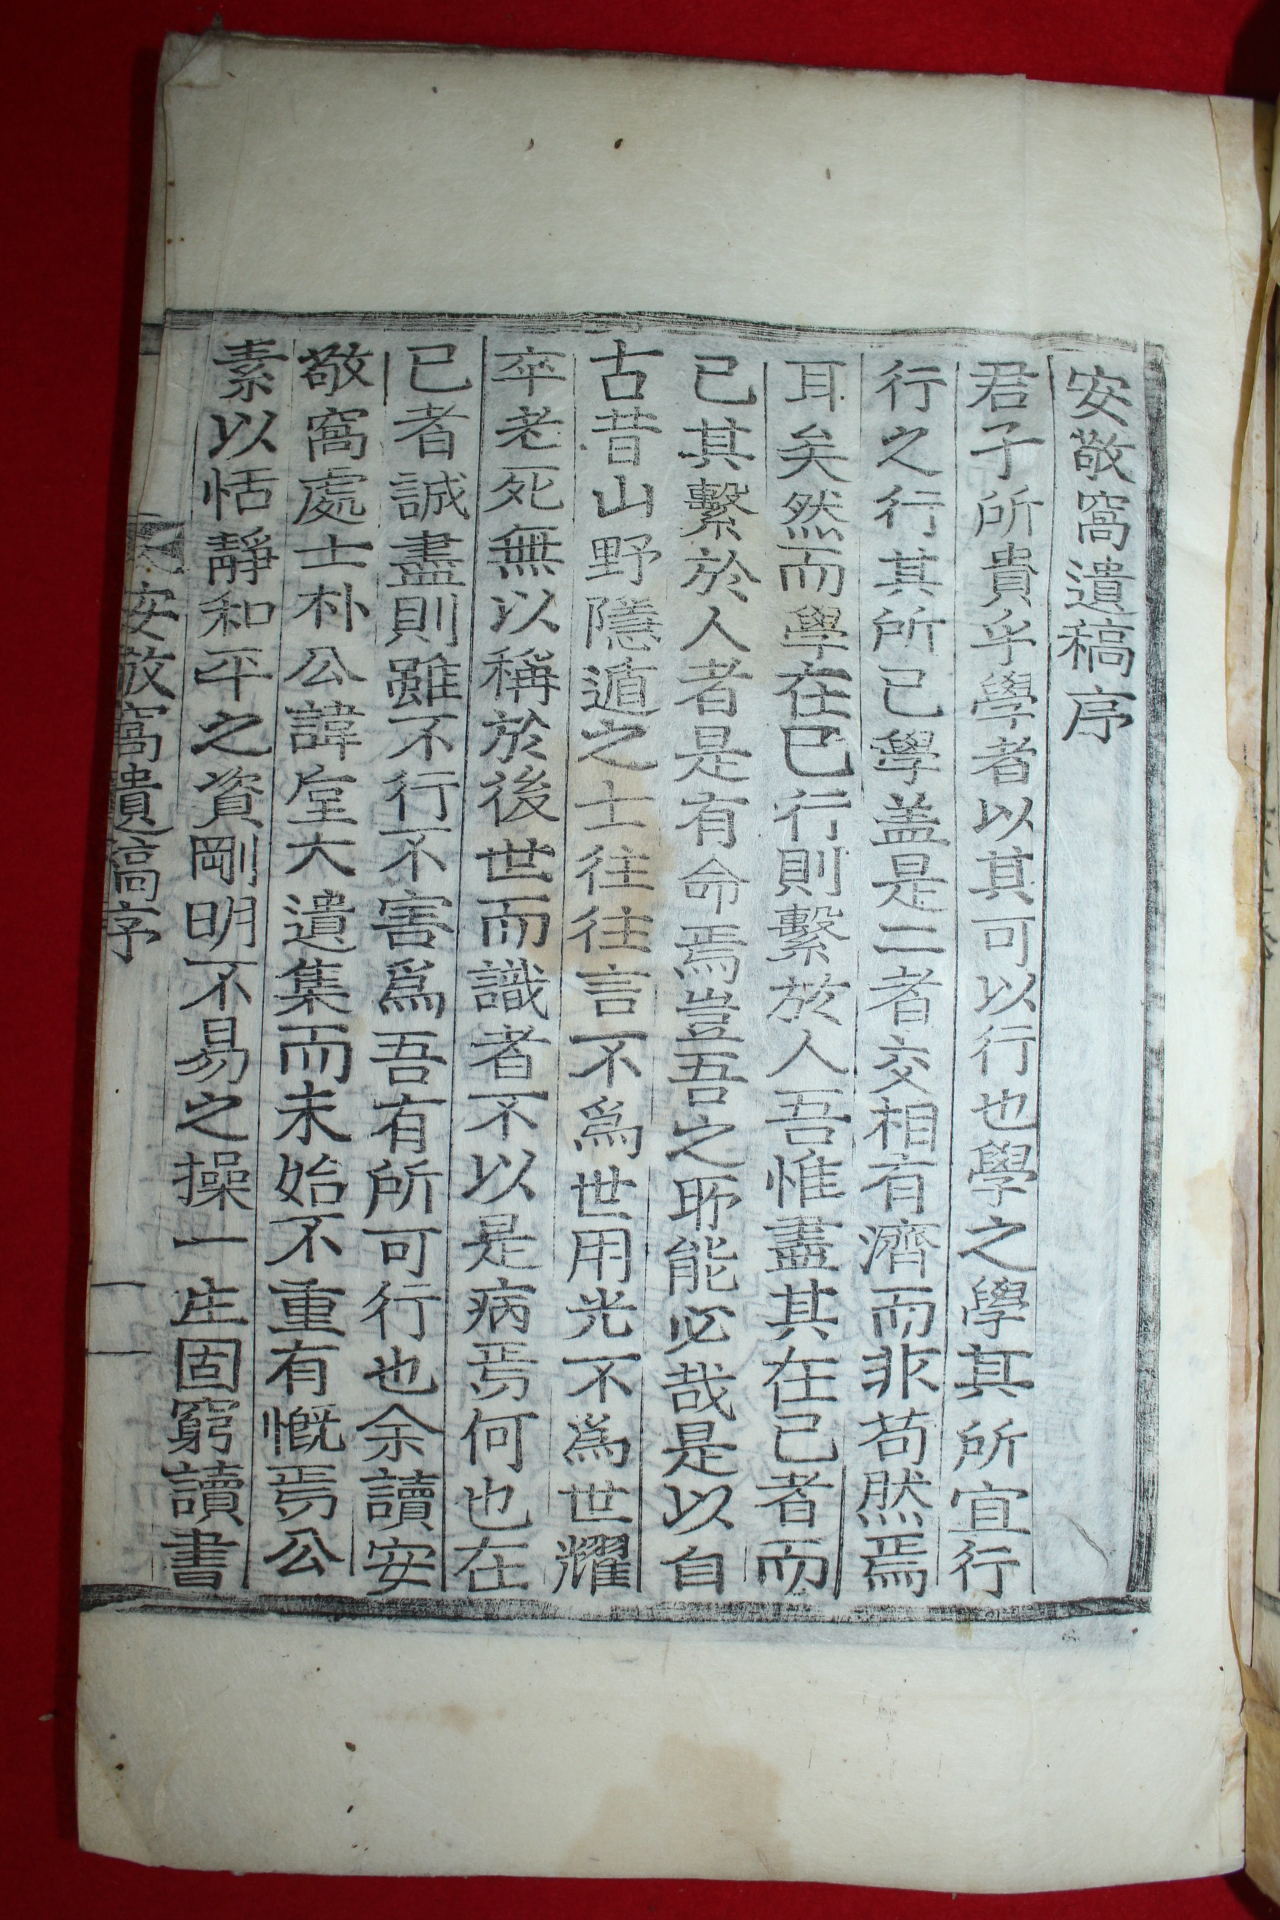 安敬窩遺稿序
君子所貴乎學者以其可以行也學之學其所宜行
行之行其所已學盖是二者交相有濟而非苟然焉
耳矣然而學在已行則繫於人吾惟盡其在己者而
已其繫於人者是有命焉豈吾之所能必哉是以自
古昔山野隱遁之士往往言不爲世用光不爲世耀
卒老死無以稱於後世而識者不以是病焉何也在
已者誠盡則雖不行不害爲吾有所可行也余讀安
敬窩處士朴公諱堂大遺集而未始不重有慨焉公
素以恬靜和平之資剛明不易之操一生固窮讀書
安敬窩遺稿序 一